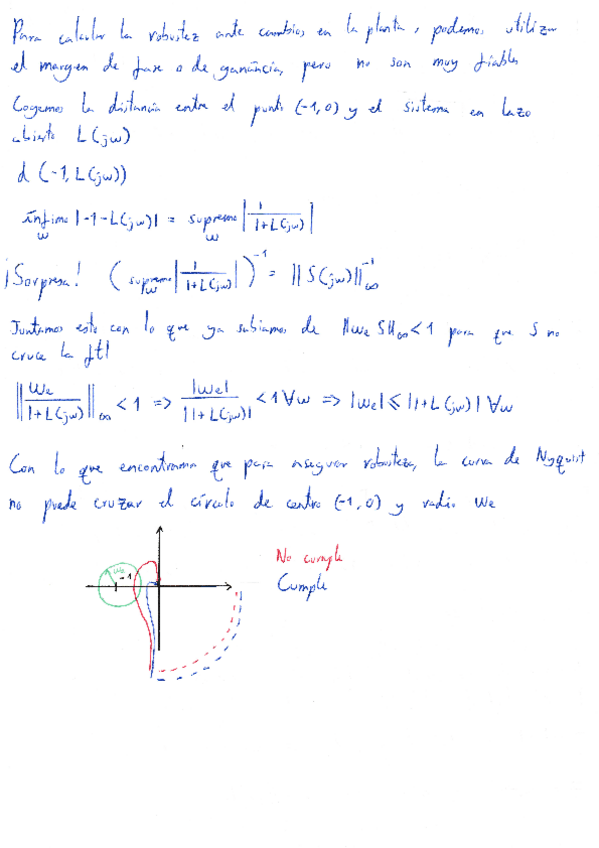 Para calcular la robustez ante cambios en la planta, podemos utilizar
el margen de fase o de ganancia, pero no son muy fiables
Cogemos la distancia entre el punto (-1,0) y el sistema en lazo
abierto L(jω)
d (-1, L(jω))
ínfimo_ω |-1-L(jω)| = supremo_ω |1/(1+L(jω))|
¡Sorpresa! (supremo_ω |1/(1+L(jω))|)^-1 = ||S(jω)||_∞^-1
Juntamos esto con lo que ya sabiamos de ||We S||_∞ < 1 para que S no
cruce la ftl
||We/(1+L(jω))||_∞ < 1 => |We|/|1+L(jω)| < 1 ∀ω => |We| ≤ |1+L(jω)| ∀ω
Con lo que encontramos que para asegurar robustez, la curva de Nyquist
no puede cruzar el círculo de centro (-1,0) y radio We
No cumple
We
-1
Cumple